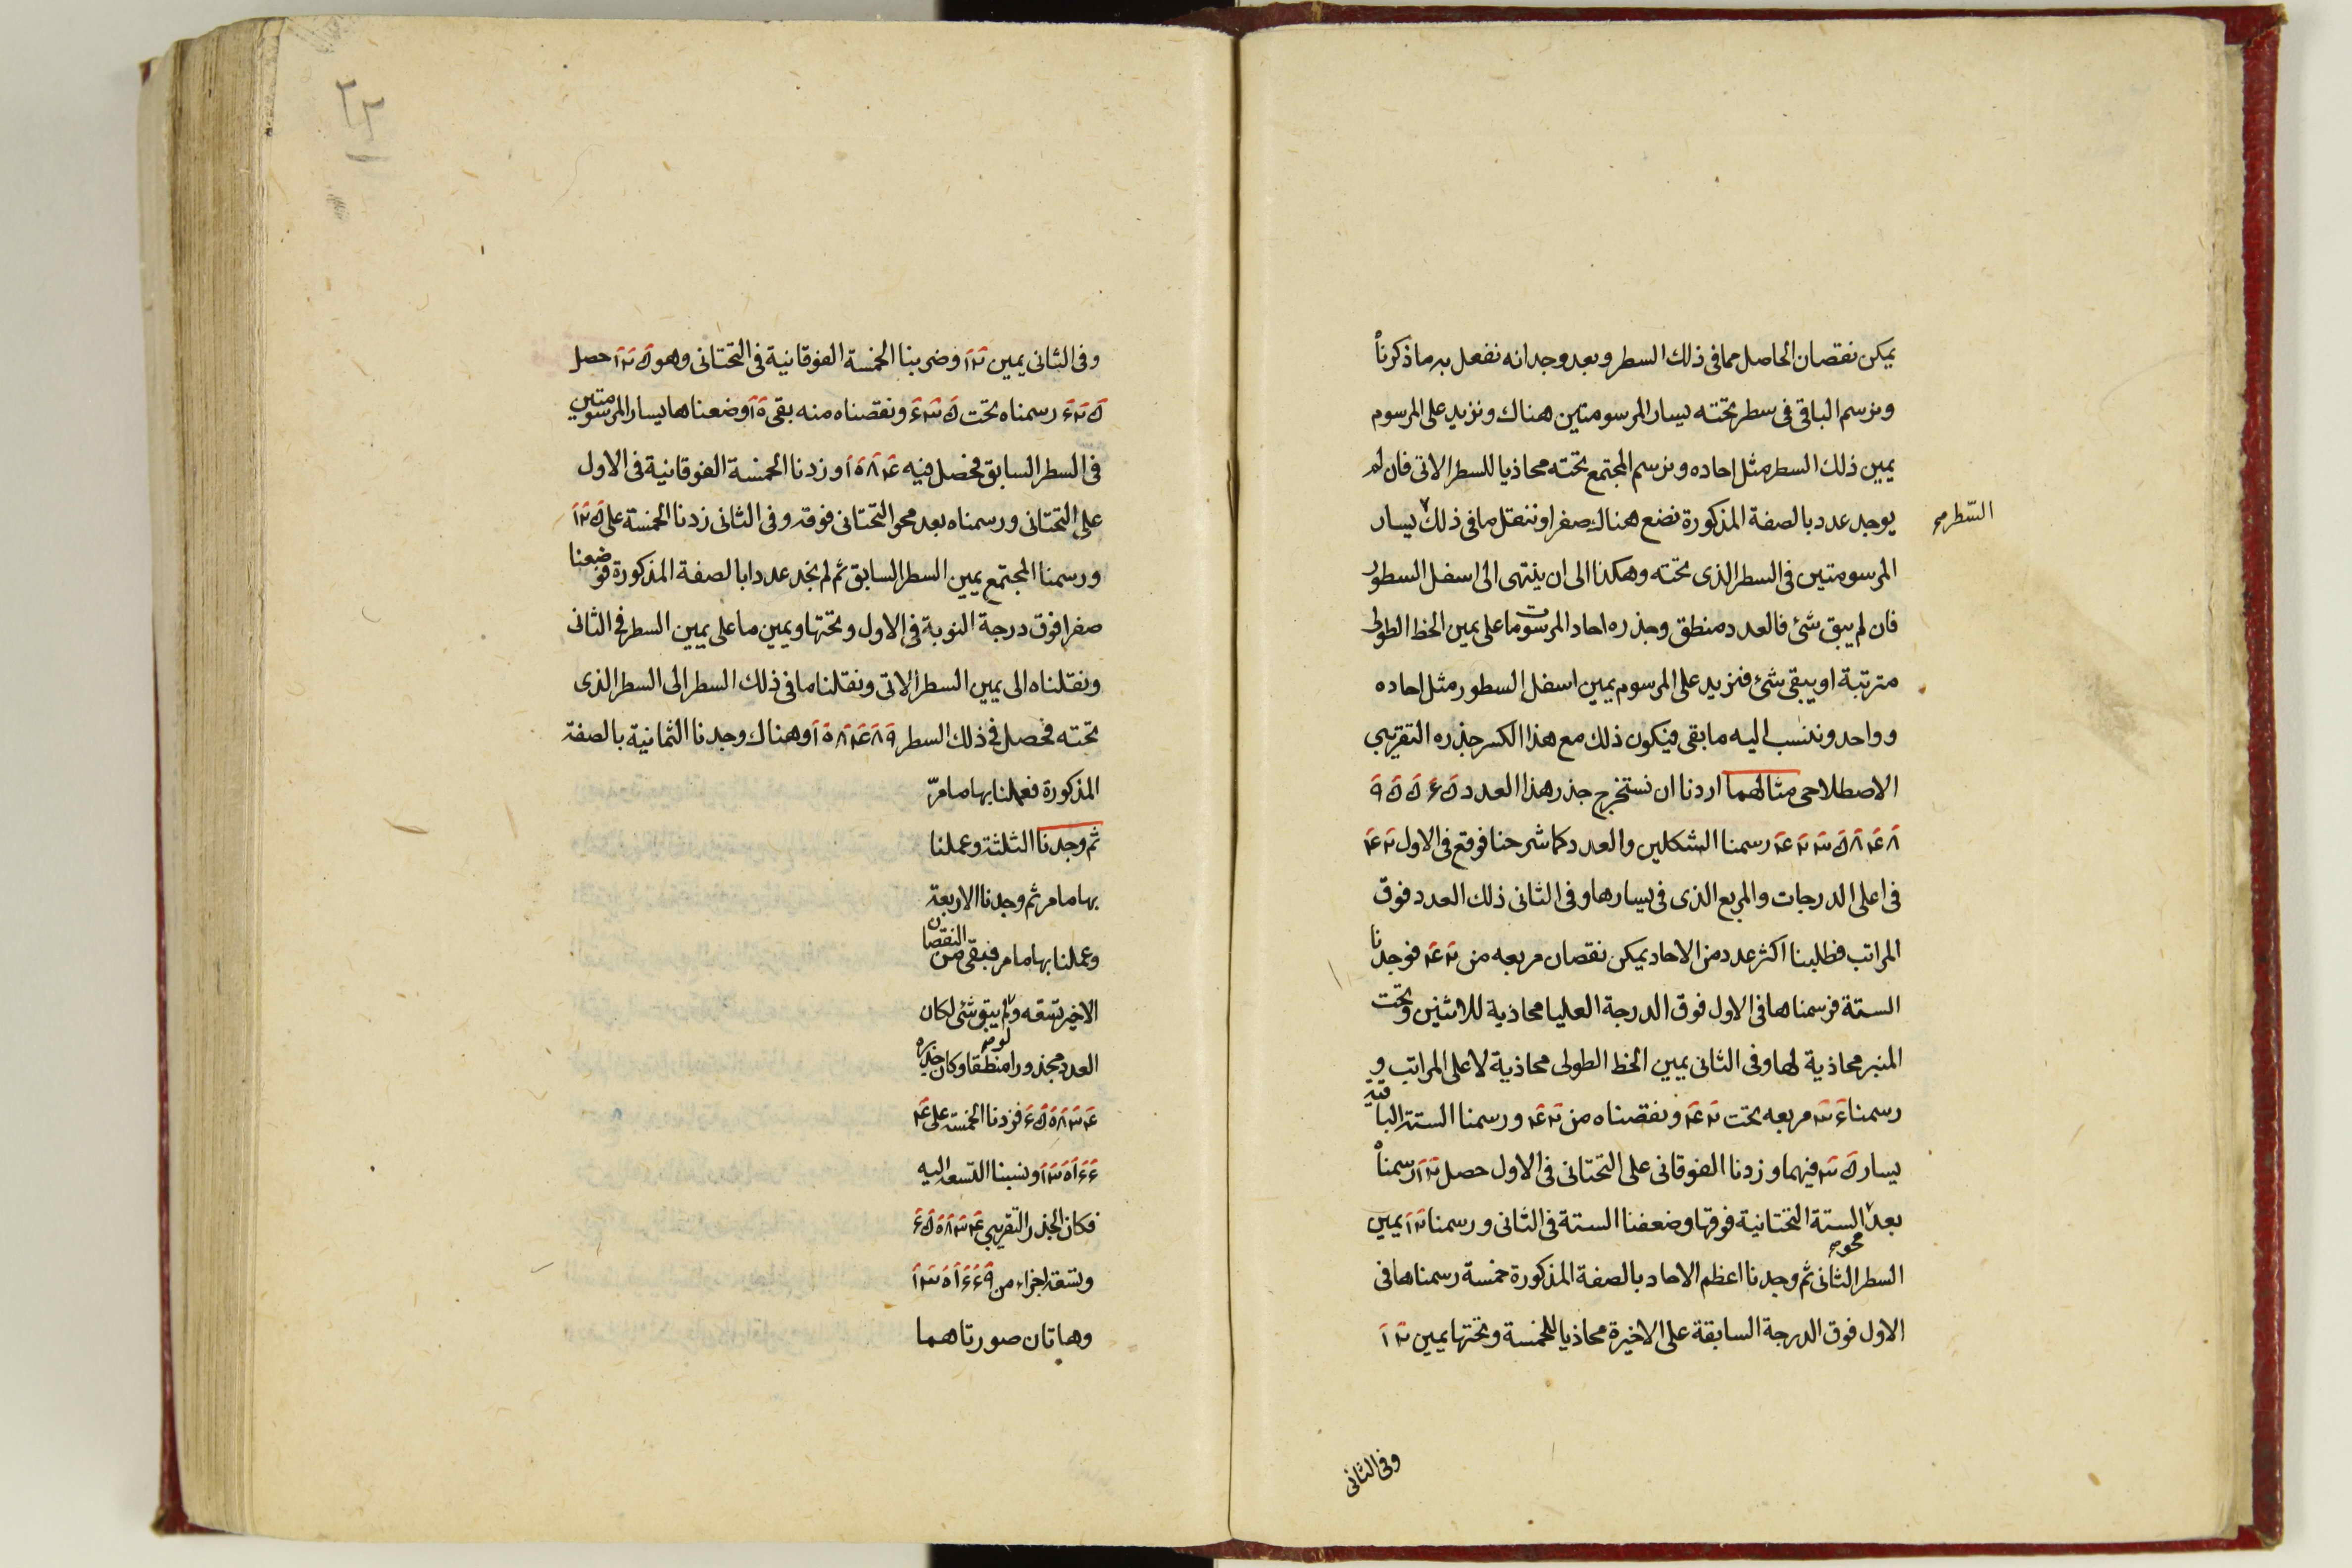 يمكن نقصان الحاصل مما فى ذلك السطر وبعد وجدانه نفعل به ما ذكرناه
ونرسم الباقى فى سطر تحته يسار المرسومتين هناك ونزيد على المرسوم
يمين ذلك السطر مثل احاده ونرسم المجتمع تحته محاذيا للسطر الاتى فان لم
يوجد عدد بالصفة المذكورة نضع هناك صفرا وننقل ما فى ذلك يسار
السّطر صح
المرسومتين فى السطر الذى تحته وهكذا الى ان ينتهى الى اسفل السطور
فان لم يبق شئ فالعدد منطق وجذره احاد المرسومات على يمين الخط الطولى
مترتبة او يبقى شئ فنزيد على المرسوم يمين اسفل السطور مثل احاده
وواحد وننسب اليه ما بقى فيكون ذلك مع هذا الكسر جذره التقريبى
الاصطلاحى مثالهما اردنا ان نستخرج جذر هذا العدد
رسمنا الشكلين والعدد كما شرحنا فوقع فى الاول
فى اعلى الدرجات والمربع الذى فى يسارها وفى الثانى ذلك العدد فوق
المراتب فطلبنا اكثر عدد من الاحاد يمكن نقصان مربعه من فوجدنا
الستة فرسمناها فى الاول فوق الدرجة العليا محاذية للاثنين وتحت
المنبر محاذية لها وفى الثانى يمين الخط الطولى محاذية لاعلى المراتب و
رسمنا مربعه تحت ونقصناه من ورسمنا الستة الباقية
يسار فيهما وزدنا الفوقانى على التحتانى فى الاول حصل رسمناه
بعد محو الستة التحتانية فوقها وضعفنا الستة فى الثانى ورسمنا يمين
السطر الثانى ثم وجدنا اعظم الاحاد بالصفة المذكورة خمسة رسمناها فى
الاول فوق الدرجة السابقة على الاخيرة محاذيا للخمسة وتحتها يمين
وفى الثانى
وفى الثانى يمين وضربنا الخمسة الفوقانية فى التحتانى وهو حصل
رسمناه تحت ونقصناه منه بقى وضعناها يسار المرسومتين
فى السطر السابق فحصل فيه وزدنا الخمسة الفوقانية فى الاول
على التحتانى ورسمناه بعد محو التحتانى فوقه وفى الثانى زدنا الخمسة على
ورسمنا المجتمع يمين السطر السابق ثم لم نجد عددا بالصفة المذكورة فوضعنا
صفرا فوق درجة النوبة فى الاول وتحتها ويمين ما على يمين السطر فى الثانى
ونقلناه الى يمين السطر الاتى ونقلنا ما فى ذلك السطر الى السطر الذى
تحته فحصل فى ذلك السطر وهناك وجدنا الثمانية بالصفة
المذكورة فعملنا بها ما مرّ
ثم وجدنا الثلثة وعملنا
بها ما مر ثم وجدنا الاربعة
وعملنا بها ما مر فبقى من النقصان
الاخير تسعه ولو لم يبق شئ لكان
العدد مجذورا منطقا وكان جذره
فزدنا الخمسة على
ونسبنا التسعه اليه
فكان الجذر التقريبى
وتسعة اجزاء من
وهاتان صورتاهما